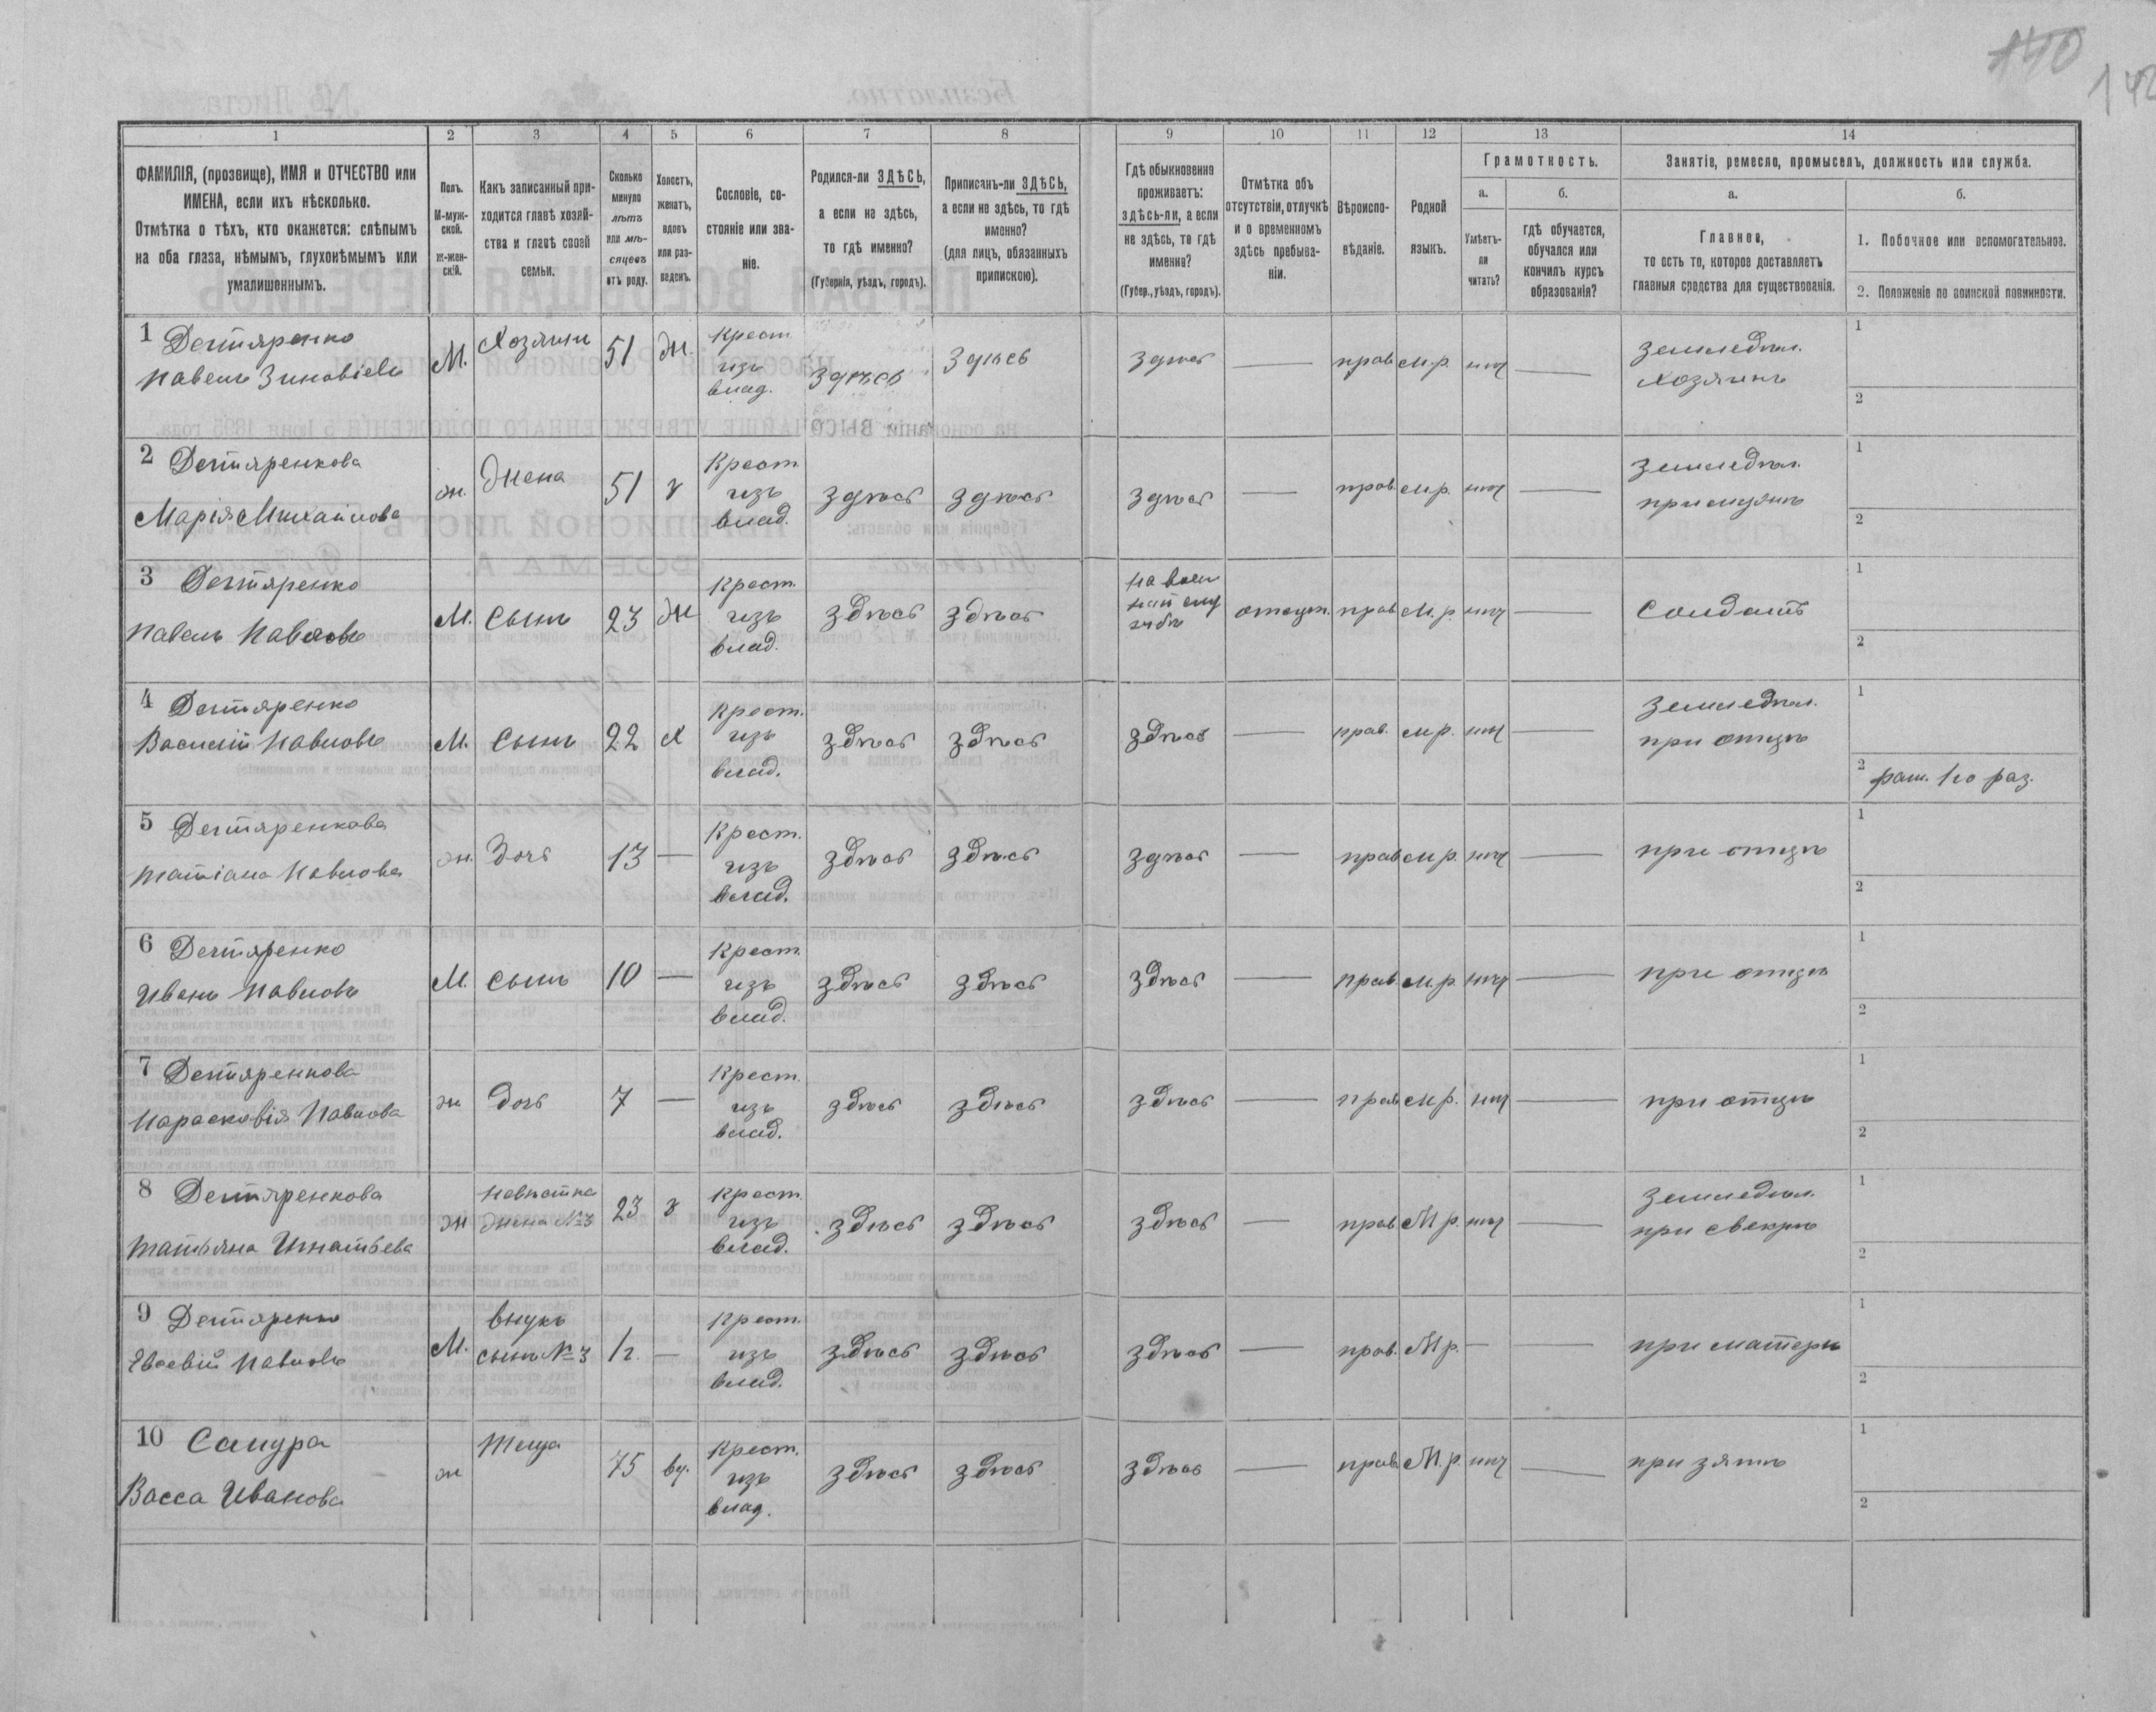 140
142
1 2 3 4 5 6 7 8 9 10 11 12 13 14
ФАМИЛІЯ, (прозвище), ИМЯ и ОТЧЕСТВО или
ИМЕНА, если ихъ нѣсколько.
Отмѣтка о тѣхъ, кто окажется: слѣпымъ
на оба глаза, нѣмымъ, глухонѣмымъ или
умалишеннымъ.
Полъ.
М-муж-
ской.
ж-жен-
скій.
Какъ записанный при-
ходится главѣ хозяй-
ства и главѣ своей
семьи.
Сколько
минуло
лѣтъ
или мѣ-
сяцевъ
отъ роду.
Холостъ,
женатъ,
вдовъ
или раз-
веденъ.
Сословіе, со-
стояніе или зва-
ніе.
Родился-ли ЗДѢСЬ,
а если не здѣсь,
то гдѣ именно?
(Губернія, уѣздъ, городъ).
Приписанъ-ли ЗДѢСЬ,
а если не здѣсь, то гдѣ
именно?
(для лицъ, обязанныхъ
припискою).
Гдѣ обыкновенно
проживаетъ:
здѣсь-ли, а если
не здѣсь, то гдѣ
именно?
(Губер., уѣздъ, городъ).
Отмѣтка объ
отсутствіи, отлучкѣ
и о временномъ
здѣсь пребыва-
ніи.
Вѣроиспо-
вѣданіе.
Родной
языкъ.
Грамотность.
а.
Умѣетъ-
ли
читать?
б.
гдѣ обучается,
обучался или
кончилъ курсъ
образованія?
Занятіе, ремесло, промыселъ, должность или служба.
а.
Главное,
то есть то, которое доставляетъ
главныя средства для существованія.
б.
1. Побочное или вспомогательное.
2. Положеніе по воинской повинности.
1 Дегтяренко
Павелъ Зиновіевъ
М. Хозяинъ 51 Ж. Крест. изъ влад. Здѣсь Здѣсь Здѣсь — прав. м.р. нѣт — Земледѣл.
Хозяинъ
1
2
2 Дегтяренкова
Марія Михайлова
ж. Жена 51 з Крест. изъ влад. здѣсь здѣсь здѣсь — прав. м.р. нѣт — Земледѣл.
при мужѣ
1
2
3 Дегтяренко
Павелъ Павловъ
М. Сынъ 23 Ж Крест. изъ влад. здѣсь здѣсь На воен
ной слу
жбѣ отсут. прав. м.р. нѣт — Солдатъ
1
2
4 Дегтяренко
Василій Павловъ
М. Сынъ 22 Х Крест. изъ влад. здѣсь здѣсь здѣсь — прав. м.р. нѣт — Земледѣл.
при отцѣ
1
2 рат. 1го раз.
5 Дегтяренкова
Татіана Павлова
ж. Дочь 13 — Крест. изъ влад. здѣсь здѣсь здѣсь — прав. м.р. нѣт — при отцѣ
1
2
6 Дегтяренко
Иванъ Павловъ
М. сынъ 10 — Крест. изъ влад. здѣсь здѣсь здѣсь — прав. м.р. нѣт — при отцѣ
1
2
7 Дегтяренкова
Парасковія Павлова
ж дочь 7 — Крест. изъ влад. здѣсь здѣсь здѣсь — прав. м.р. нѣт — при отцѣ
1
2
8 Дегтяренкова
Татьяна Игнатьева
ж Невѣстка
жена №3 23 з Крест. изъ влад. здѣсь здѣсь здѣсь — прав. м.р. нѣт — Земледѣл.
при свекрѣ
1
2
9 Дегтяренко
Евсевій Павловъ
М. внукъ
сынъ №3 1г. — Крест. изъ влад. здѣсь здѣсь здѣсь — прав. м.р. — — при матери
1
2
10 Сапура
Васса Иванова
ж Теща 75 вд. Крест. изъ влад. здѣсь здѣсь здѣсь — прав. м.р. нѣт — при зятѣ
1
2